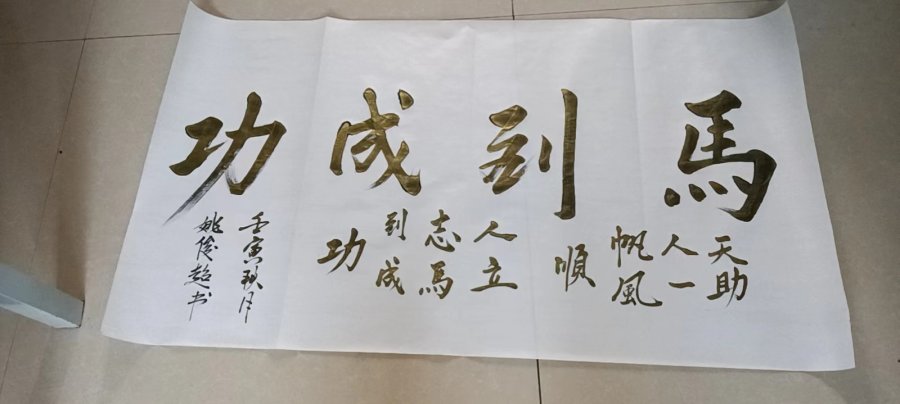 馬到成功
天助
人一
帆風
順
人立
志馬
到成
功
壬寅秋月
姚俊超书